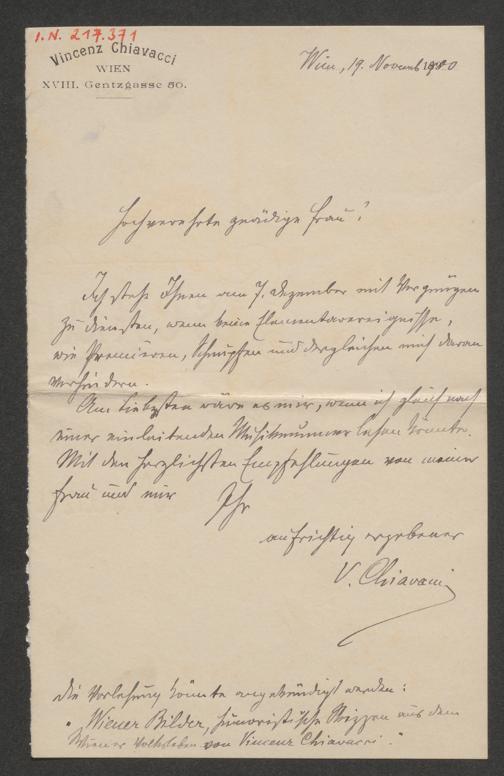 I.N. 217.371
Vincenz Chiavacci
WIEN
XVIII. Gentzgasse 50.
Wien, 19. Novemb 1900
Hochverehrte gnädige Frau!
Ich stehe Ihnen am 7. Dezember mit Vergnügen
zu Diensten, wenn keine Elementarereignisse,
wie Premièren, Schnupfen und dergleichen mich daran
verhindern.
Am liebsten wäre es mir, wenn ich gleich nach
einer einleitenden Musiknummer lesen könnte.
Mit den herzlichsten Empfehlungen von meiner
Frau und mir Ihr
aufrichtig ergebener
V. Chiavacci
Die Vorlesung könnte angekündigt werden:
„Wiener Bilder, humoristische Skizzen aus dem
Wiener Volksleben von Vincenz Chiavacci."